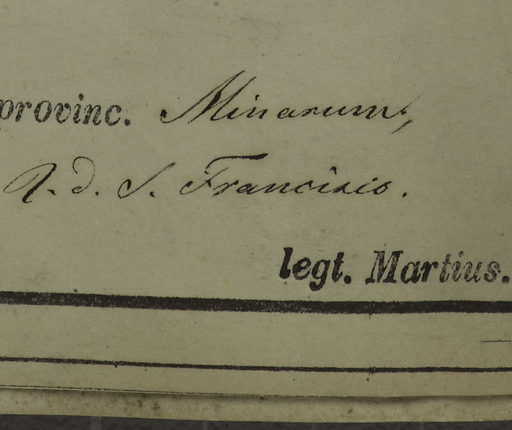 provinc. Minarum,
R. d. S. Francisco.
legt. Martius.